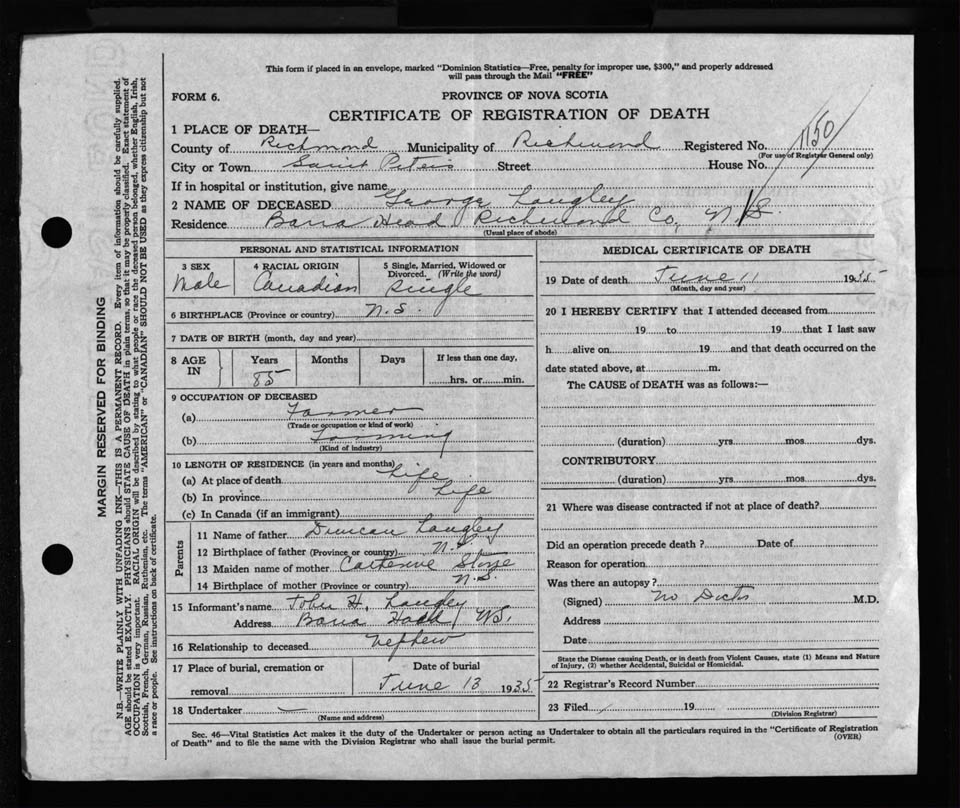 This form if placed in an envelope, marked "Dominion Statistics—Free, penalty for improper use, $300," and properly addressed
will pass through the Mail "FREE"
FORM 6.
PROVINCE OF NOVA SCOTIA
CERTIFICATE OF REGISTRATION OF DEATH
1 PLACE OF DEATH—
County of Richmond Municipality of Richmond Registered No. 1150
(For use of Registrar General only)
City or Town Saint Peters Street House No.
If in hospital or institution, give name
2 NAME OF DECEASED George Langley
Residence Barra Head Richmond Co, N.S.
(Usual place of abode)
PERSONAL AND STATISTICAL INFORMATION
3 SEX 4 RACIAL ORIGIN 5 Single, Married, Widowed or
Divorced. (Write the word)
Male Canadian Single
6 BIRTHPLACE (Province or country) N.S.
7 DATE OF BIRTH (month, day and year)
8 AGE IN Years Months Days If less than one day,
85 hrs. or min.
9 OCCUPATION OF DECEASED
(a) Farmer
(Trade or occupation or kind of work)
(b) Farming
(Kind of industry)
10 LENGTH OF RESIDENCE (in years and months)
(a) At place of death Life
(b) In province Life
(c) In Canada (if an immigrant)
Parents
11 Name of father Duncan Langley
12 Birthplace of father (Province or country) N.S.
13 Maiden name of mother Catherine
14 Birthplace of mother (Province or country) N.S.
15 Informant's name John H. Langley
Address Barra Head, N.S.
16 Relationship to deceased Nephew
17 Place of burial, cremation or Date of burial
removal June 13 1935
18 Undertaker —
(Name and address)
MEDICAL CERTIFICATE OF DEATH
19 Date of death June 11 1935
(Month, day and year)
20 I HEREBY CERTIFY that I attended deceased from
19 to 19 that I last saw
h alive on 19 and that death occurred on the
date stated above, at m.
The CAUSE of DEATH was as follows:—
(duration) yrs. mos. dys.
CONTRIBUTORY
(duration) yrs. mos. dys.
21 Where was disease contracted if not at place of death?
Did an operation precede death ? Date of
Reason for operation
Was there an autopsy ?
(Signed) No Doctor M.D.
Address
Date
State the Disease causing Death, or in death from Violent Causes, state (1) Means and Nature
of Injury, (2) whether Accidental, Suicidal or Homicidal.
22 Registrar's Record Number
23 Filed 19
(Division Registrar)
Sec. 46—Vital Statistics Act makes it the duty of the Undertaker or person acting as Undertaker to obtain all the particulars required in the "Certificate of Registration
of Death" and to file the same with the Division Registrar who shall issue the burial permit.
(OVER)
MARGIN RESERVED FOR BINDING
N.B.—WRITE PLAINLY WITH UNFADING INK—THIS IS A PERMANENT RECORD. Every item of information should be carefully supplied.
AGE should be stated EXACTLY. PHYSICIANS should STATE CAUSE OF DEATH in plain terms, so that it may be properly classified. Exact statement of
OCCUPATION is very important. RACIAL ORIGIN will be described by stating to what people or race the deceased person belonged, whether English, Irish,
Scottish, French, German, Russian, Ruthenian, etc. The terms "AMERICAN" or "CANADIAN" SHOULD NOT BE USED as they express citizenship but not
a race or people. See instructions on back of certificate.